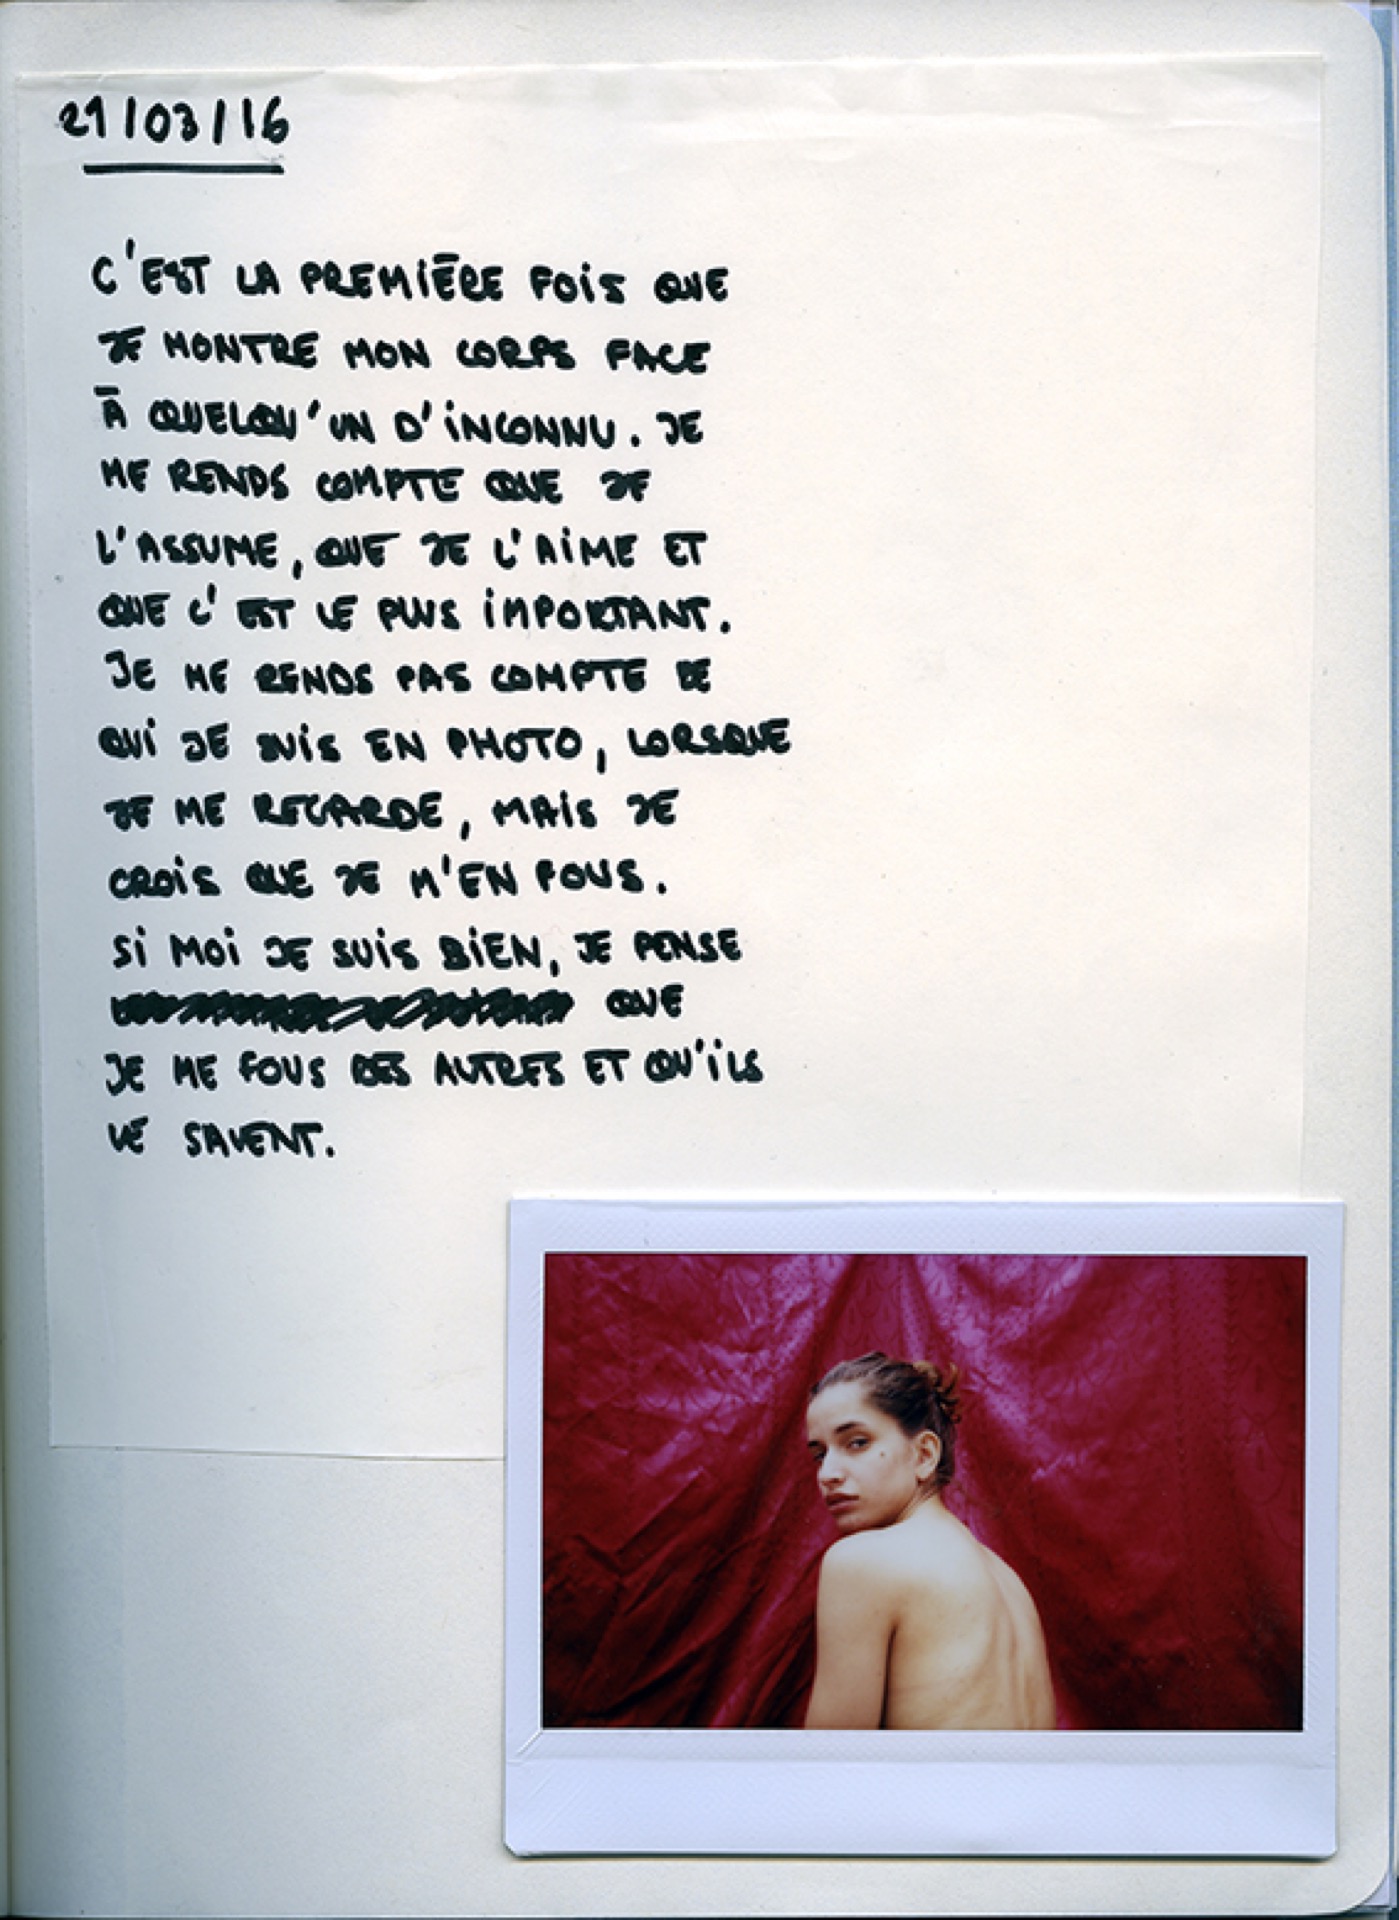 21/03/16
C'EST LA PREMIĒRE FOIS QUE
JE MONTRE MON CORPS FACE
Ā QUELQU'UN D'INCONNU. JE
ME RENDS COMPTE QUE JE
L'ASSUME, QUE JE L'AIME ET
QUE C'EST LE PLUS IMPORTANT.
JE ME RENDS PAS COMPTE DE
QUI JE SUIS EN PHOTO, LORSQUE
JE ME REGARDE, MAIS JE
CROIS QUE JE M'EN FOUS.
SI MOI JE SUIS BIEN, JE PENSE
QUE
JE ME FOUS DES AUTRES ET QU'ILS
LE SAVENT.